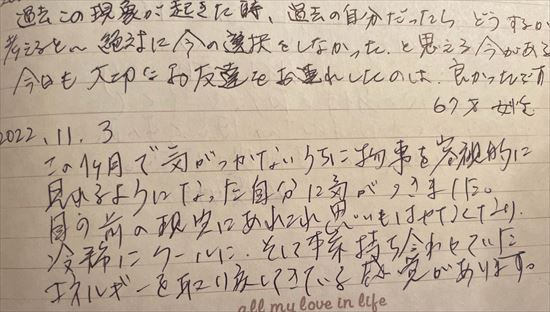 過去この現象が起きた時、過去の自分だったら どうするか
考えると〜 絶対に今の選択をしなかった。と思える今がある
今日も 大切なお友達をお連れしたのは、良かったです
67才 女性
2022.11.3
この1ヶ月で気がつかないうちに物事を客観的に
見れるようになった自分に気がつきました。
目の前の現実にあれこれ思いもはせなくなり、
冷静にクールに、そして本来持ち合わせていた
エネルギーを取り戻してきている感覚があります。
all my love in life